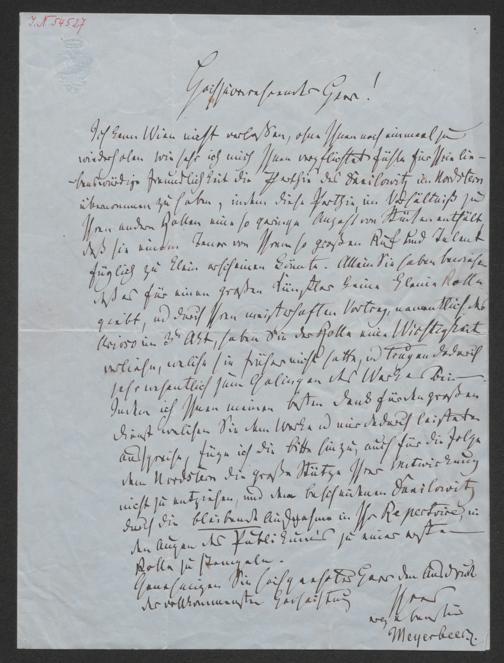 I.N 54527
Hochzuverehrender Herr!
Ich kann Wien nicht verlaßen, ohne Ihnen noch einmal zu
wiederholen wie sehr ich mich Ihnen verpflichtet fühle für Ihre lie-
-benswürdige Freundlichkeit die Parthie des Danilowitz im Nordstern
übernommen zu haben, indem diese Parthie im Verhältniß zu
Ihren andern Rollen eine so geringe Anzahl von Stücken enthält
daß sie einem Tenor von Ihrem so großen Ruf und Talent
füglich zu klein erscheinen könnte. Allein Sie haben bewiesen
daß es für einen großen Künstler keine kleine Rolle
giebt, und durch Ihren meisterhaften Vortrag, namentlich des
Arioso im 3t Akt, haben Sie der Rolle eine Wichtigkeit
verliehn, welche sie früher nicht hatte, u trugen dadurch
sehr wesentlich zum Gelingen des Werkes bei.
Indem ich Ihnen meinen besten Dank für den großen
Dienst welchen Sie dem Werke u mir dadurch leisteten
ausspreche, füge ich die Bitte hinzu, auch für die Folge
dem Nordstern die große Stütze Ihrer Mitwirkung
nicht zu entziehen, und dem bescheidenen Danilowitz
durch die bleibende Aufnahme in Ihr Repertoire, in
den Augen des Publikums zu einer ersten
Rolle zu stempeln.
Genehmigen Sie hochgeehrter Herr den Ausdruck
der vollkommensten Hochachtung
Ihres
ergebensten
Meyerbeer.